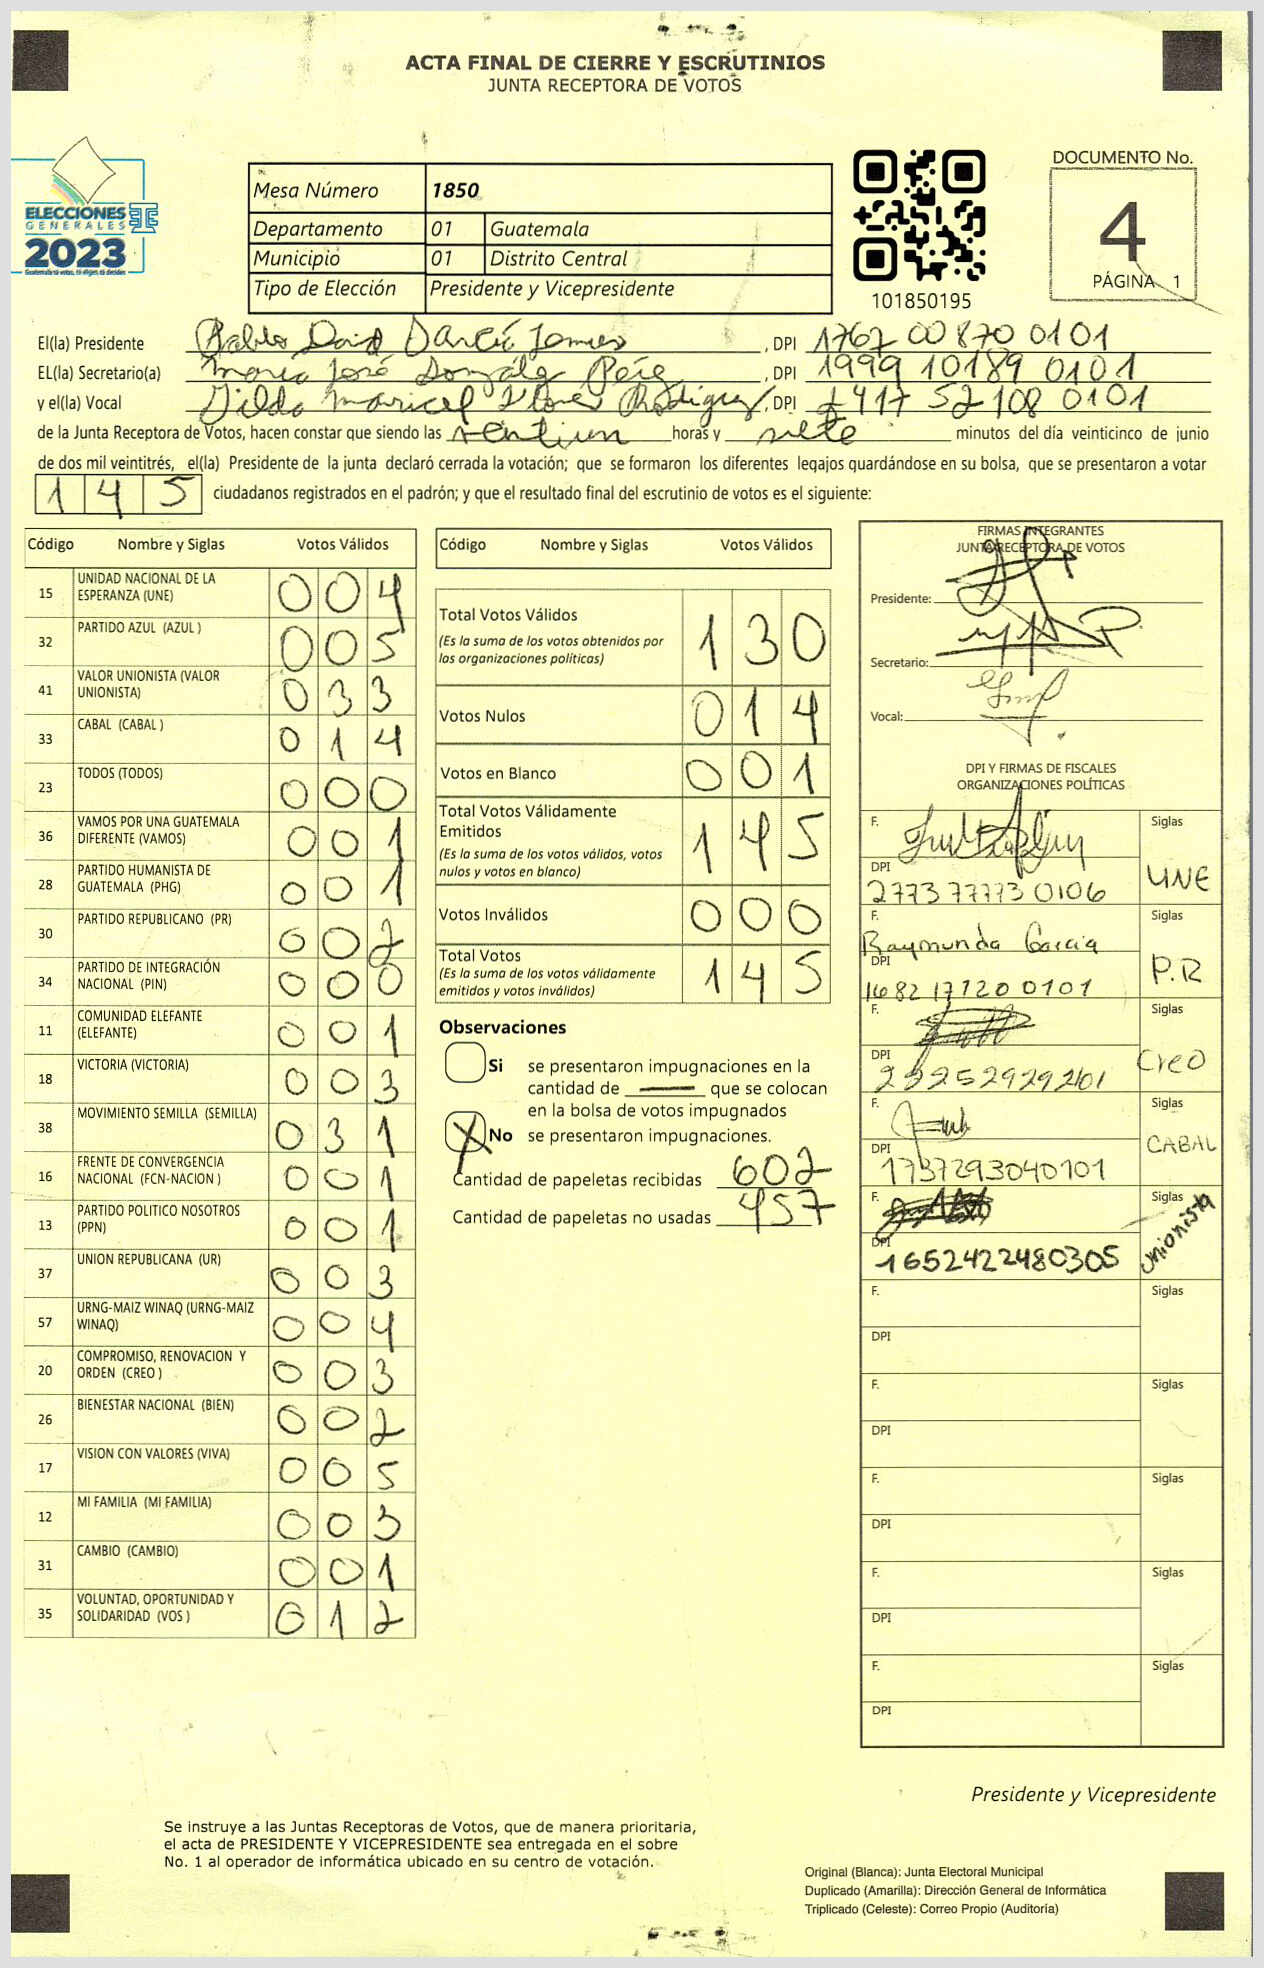 ACTA FINAL DE CIERRE Y ESCRUTINIOS
JUNTA RECEPTORA DE VOTOS
ELECCIONES
GENERALES
2023
Mesa Número 1850
Departamento 01 Guatemala
Municipio 01 Distrito Central
Tipo de Elección Presidente y Vicepresidente
101850195
DOCUMENTO No.
4
PÁGINA 1
El(la) Presidente Pablo David García , DPI 1762 00870 0101
EL(la) Secretario(a) María José González Pérez , DPI 1999 10189 0101
y el(la) Vocal Maricel Rodriguez , DPI 2417 52108 0101
de la Junta Receptora de Votos, hacen constar que siendo las ventiun horas y siete minutos del día veinticinco de junio
de dos mil veintitrés, el(la) Presidente de la junta declaró cerrada la votación; que se formaron los diferentes legajos guardándose en su bolsa, que se presentaron a votar
145 ciudadanos registrados en el padrón; y que el resultado final del escrutinio de votos es el siguiente:
Código Nombre y Siglas Votos Válidos
15 UNIDAD NACIONAL DE LA ESPERANZA (UNE) 004
32 PARTIDO AZUL (AZUL ) 005
41 VALOR UNIONISTA (VALOR UNIONISTA) 033
33 CABAL (CABAL ) 014
23 TODOS (TODOS) 000
36 VAMOS POR UNA GUATEMALA DIFERENTE (VAMOS) 001
28 PARTIDO HUMANISTA DE GUATEMALA (PHG) 001
30 PARTIDO REPUBLICANO (PR) 002
34 PARTIDO DE INTEGRACIÓN NACIONAL (PIN) 000
11 COMUNIDAD ELEFANTE (ELEFANTE) 001
18 VICTORIA (VICTORIA) 003
38 MOVIMIENTO SEMILLA (SEMILLA) 031
16 FRENTE DE CONVERGENCIA NACIONAL (FCN-NACION ) 001
13 PARTIDO POLITICO NOSOTROS (PPN) 001
37 UNION REPUBLICANA (UR) 003
57 URNG-MAIZ WINAQ (URNG-MAIZ WINAQ) 004
20 COMPROMISO, RENOVACION Y ORDEN (CREO ) 003
26 BIENESTAR NACIONAL (BIEN) 002
17 VISION CON VALORES (VIVA) 005
12 MI FAMILIA (MI FAMILIA) 003
31 CAMBIO (CAMBIO) 001
35 VOLUNTAD, OPORTUNIDAD Y SOLIDARIDAD (VOS ) 012
Código Nombre y Siglas Votos Válidos
Total Votos Válidos 130
(Es la suma de los votos obtenidos por
las organizaciones políticas)
Votos Nulos 014
Votos en Blanco 001
Total Votos Válidamente
Emitidos 145
(Es la suma de los votos válidos, votos
nulos y votos en blanco)
Votos Inválidos 000
Total Votos 145
(Es la suma de los votos válidamente
emitidos y votos inválidos)
Observaciones
Si se presentaron impugnaciones en la
cantidad de que se colocan
en la bolsa de votos impugnados
X No se presentaron impugnaciones.
Cantidad de papeletas recibidas 602
Cantidad de papeletas no usadas 457
FIRMAS INTEGRANTES
JUNTA RECEPTORA DE VOTOS
Presidente:
Secretario:
Vocal:
DPI Y FIRMAS DE FISCALES
ORGANIZACIONES POLÍTICAS
F. Siglas
DPI UNE
2773 77773 0106
F. Raymunda Garcia Siglas
DPI P.R
1682 17120 0101
F. Siglas
DPI Creo
F. Siglas
DPI CABAL
1737293040101
F. Siglas
DPI Unionista
1652422480305
F. Siglas
DPI
F. Siglas
DPI
F. Siglas
DPI
F. Siglas
DPI
F. Siglas
DPI
Presidente y Vicepresidente
Se instruye a las Juntas Receptoras de Votos, que de manera prioritaria,
el acta de PRESIDENTE Y VICEPRESIDENTE sea entregada en el sobre
No. 1 al operador de informática ubicado en su centro de votación.
Original (Blanca): Junta Electoral Municipal
Duplicado (Amarilla): Dirección General de Informática
Triplicado (Celeste): Correo Propio (Auditoría)